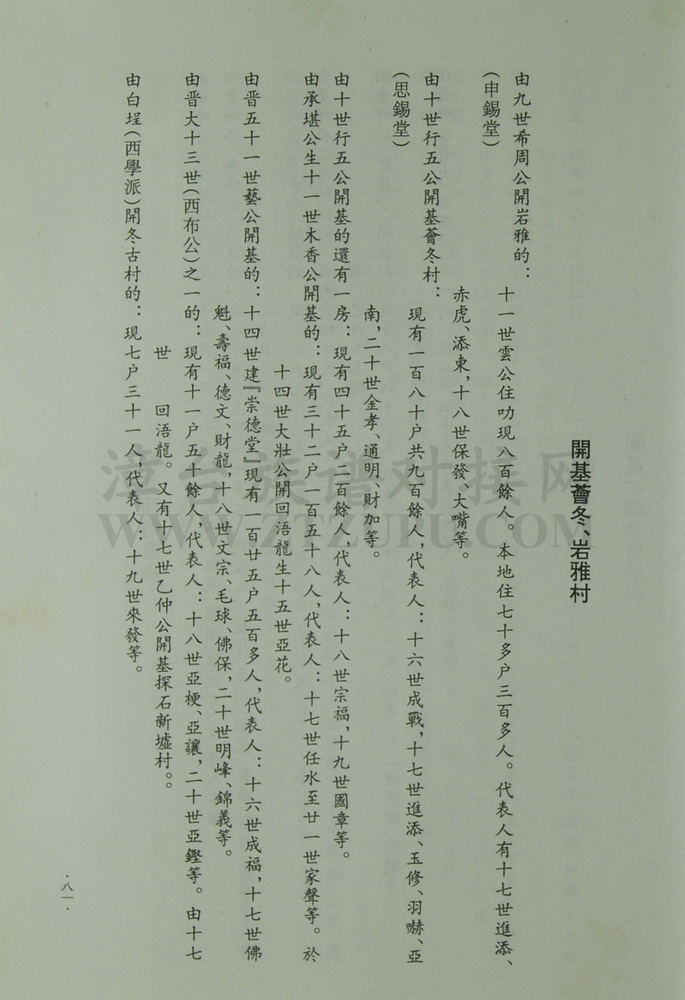 開基薈冬、岩雅村
由九世希周公開岩雅的：
十一世雲公住叻現八百餘人。本地住七十多户三百多人。代表人有十七世進添、
(申錫堂)
赤虎、添東，十八世保發、大嘴等。
由十世行五公開基薈冬村：
現有一百八十户共九百餘人，代表人：十六世成戰，十七世進添、玉修、羽嚇、亞
(思錫堂)
南，二十世金孝、通明、財加等。
由十世行五公開基的還有一房：現有四十五户二百餘人，代表人：十八世宗福，十九世國章等。
由承堪公生十一世木香公開基的：現有三十二户一百五十八人，代表人：十七世任水至廿一世家聲等。於
十四世大壯公開回浯龍生十五世亞花。
由晋五十一世藝公開基的：十四世建『崇德堂』現有一百廿五户五百多人，代表人：十六世成福，十七世佛
魁、壽福、德文、財龍，十八世文宗、毛球、佛保，二十世明峰、錦義等。
由晋大十三世(西布公)之一的：現有十一户五十餘人，代表人：十八世亞梗、亞讓，二十世亞鏗等。由十七
世 回浯龍。又有十七世乙仲公開基探石新墟村。。
由白埕(西學派)開冬古村的：現七户三十一人，代表人：十九世來發等。
·八一·
WWW.TZJPU.COM